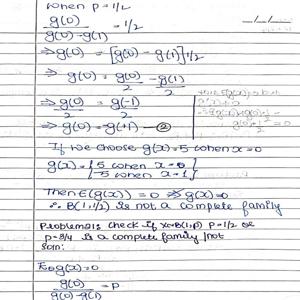 when p = 1/2
g(0) / g(0)-g(1) = 1/2
⇒ g(0) = [g(0) - g(1)] 1/2
⇒ g(0) = g(0)/2 - g(1)/2
⇒ g(0)/2 = g(-1)/2
⇒ g(0) = -g(+1) — ②
If we choose g(x) = 5 when x = 0
g(x) = { 5 when x = 0
{ -5 when x = 1 }
Then E(g(x)) = 0 ⇏ g(x) = 0
∴ B(1, 1/2) is not a complete family
Problem: check if X~B(1,p) p = 1/2 or
p = 3/4 is a complete family/not
Soln:
g(x) = 0
g(0) / g(0)-g(1) = p